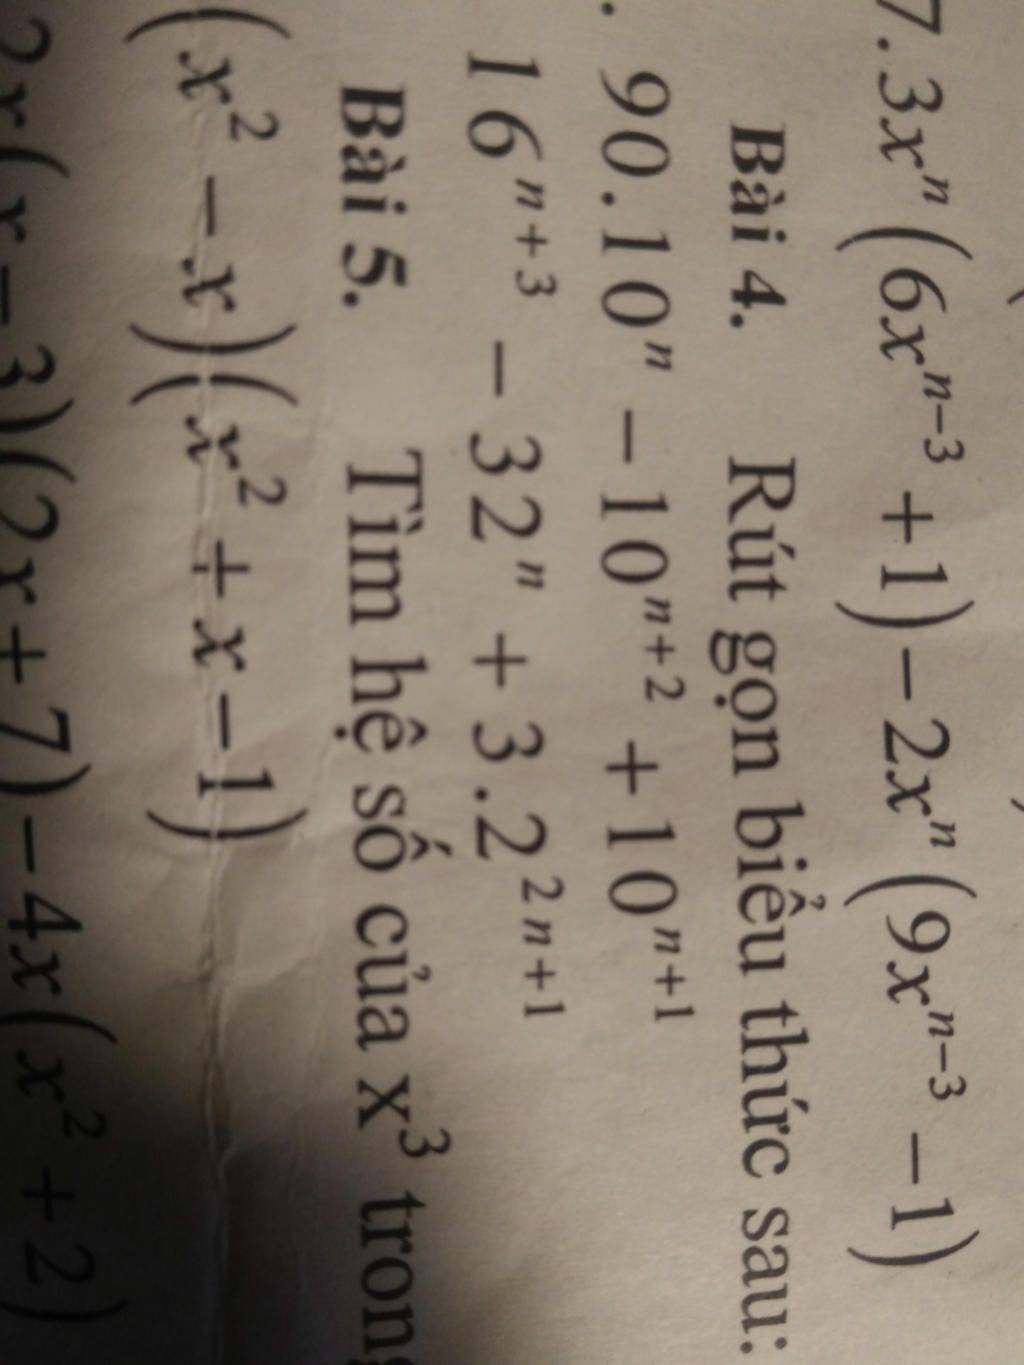 7. 3xⁿ(6xⁿ⁻³ + 1) − 2xⁿ(9xⁿ⁻³ − 1)
Bài 4. Rút gọn biểu thức sau:
. 90.10ⁿ − 10ⁿ⁺² + 10ⁿ⁺¹
16ⁿ⁺³ − 32ⁿ + 3.2²ⁿ⁺¹
Bài 5. Tìm hệ số của x³ trong
(x² − x)(x² + x − 1)
2x(x − 3)(2x + 7) − 4x(x² + 2)